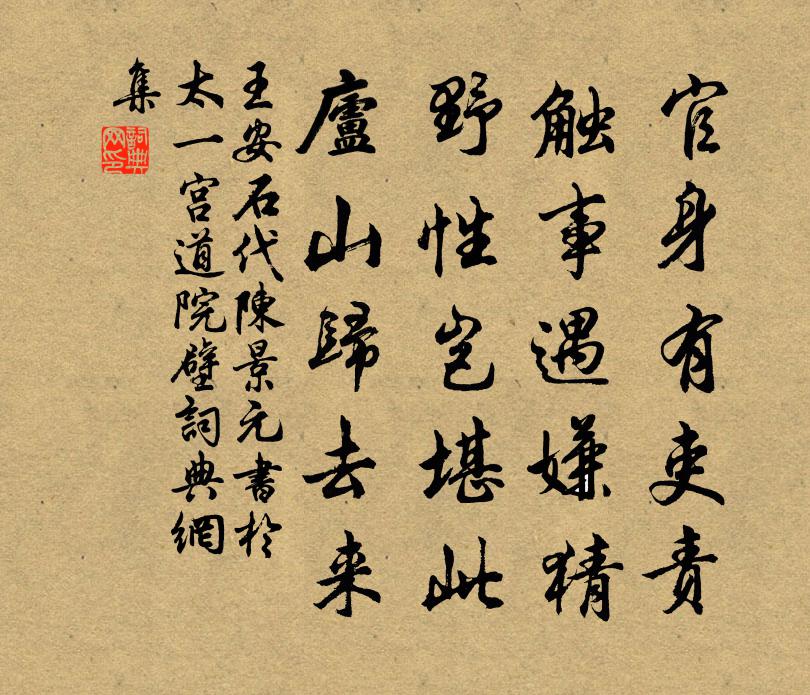 官身有吏責
触事遇嫌猜
野性豈堪此
廬山歸去来
王安石代陳景元書於
太一宫道院壁詞典網
集
詞典
网印